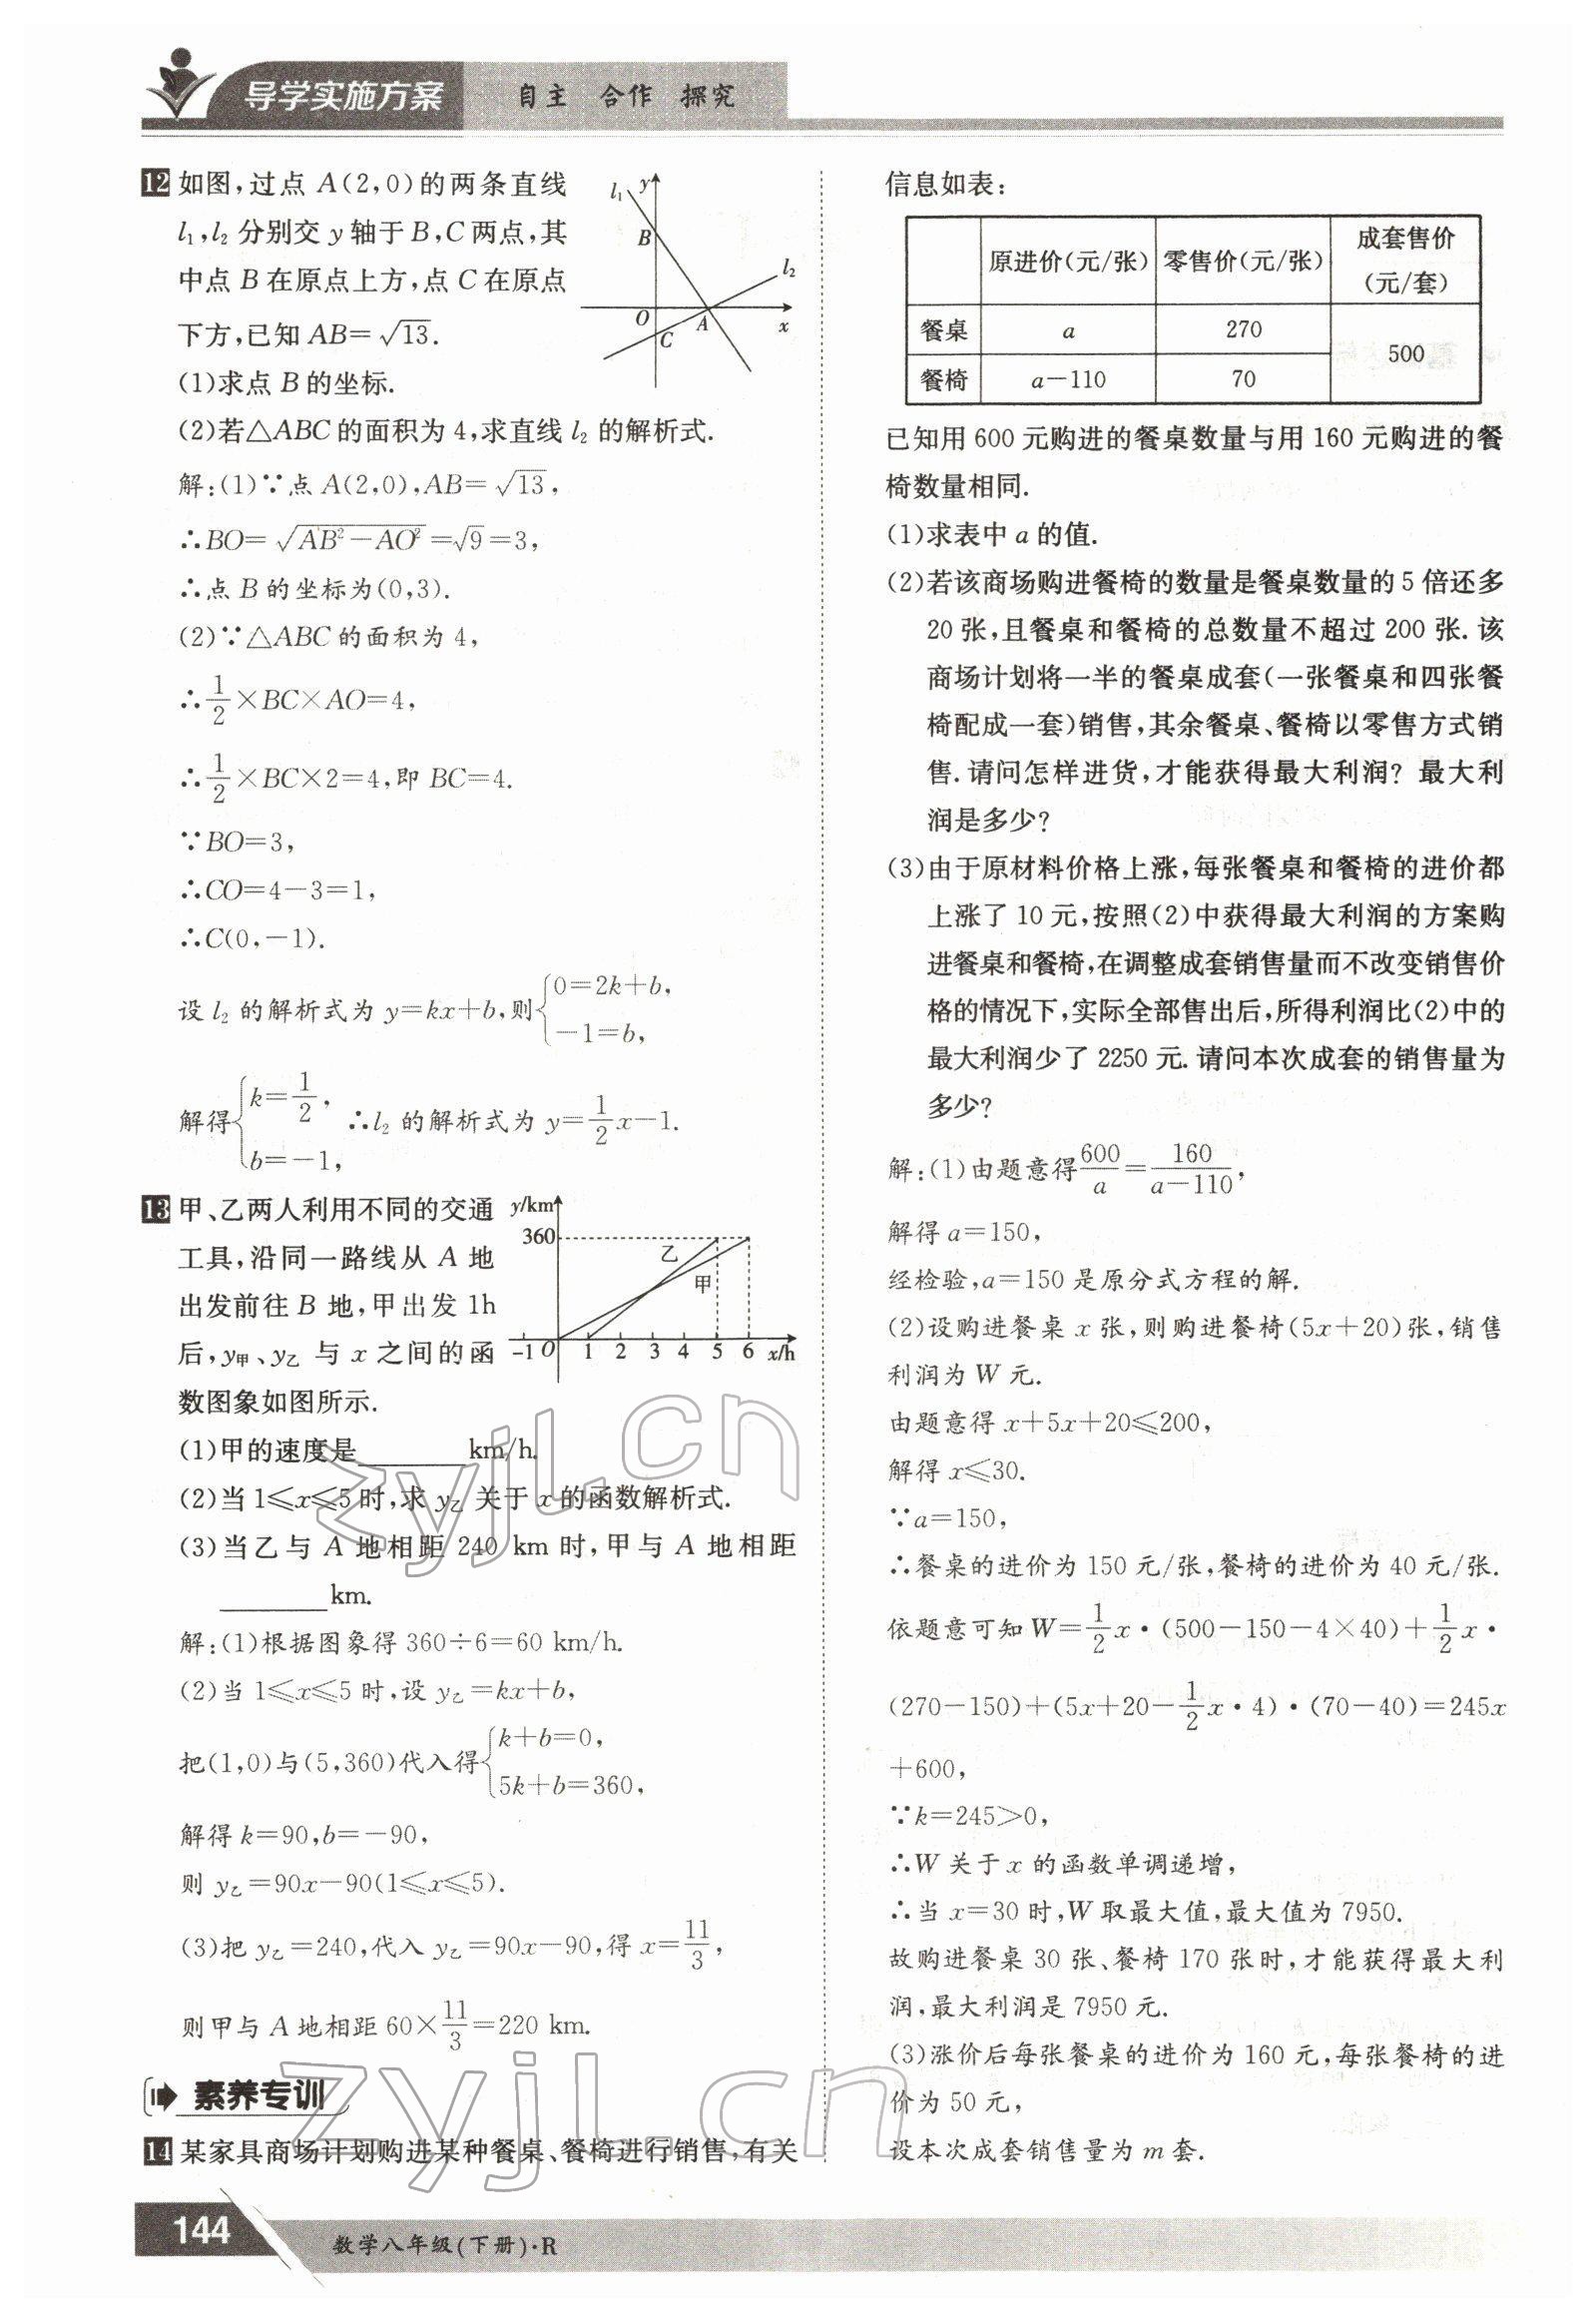 导学实施方案
自主 合作 探究
12 如图,过点 A(2,0)的两条直线
l₁,l₂ 分别交 y 轴于 B,C 两点,其
中点 B 在原点上方,点 C 在原点
下方,已知 AB=√13.
(1)求点 B 的坐标.
(2)若△ABC 的面积为 4,求直线 l₂ 的解析式.
l₁ y
B
l₂
O A x
C
解:(1)∵点 A(2,0),AB=√13,
∴BO=√(AB²-AO²)=√9=3,
∴点 B 的坐标为(0,3).
(2)∵△ABC 的面积为 4,
∴1/2×BC×AO=4,
∴1/2×BC×2=4,即 BC=4.
∵BO=3,
∴CO=4-3=1,
∴C(0,-1).
设 l₂ 的解析式为 y=kx+b,则{0=2k+b,
-1=b,
解得{k=1/2,
b=-1,
∴l₂ 的解析式为 y=1/2x-1.
13 甲、乙两人利用不同的交通
工具,沿同一路线从 A 地
出发前往 B 地,甲出发 1h
后,y甲、y乙 与 x 之间的函
数图象如图所示.
y/km
360
乙
甲
-1 O 1 2 3 4 5 6 x/h
(1)甲的速度是________km/h.
(2)当 1≤x≤5时,求 y乙 关于 x 的函数解析式.
(3)当乙与 A 地相距 240 km 时,甲与 A 地相距
________km.
解:(1)根据图象得 360÷6=60 km/h.
(2)当 1≤x≤5 时,设 y乙=kx+b,
把(1,0)与(5,360)代入得{k+b=0,
5k+b=360,
解得 k=90,b=-90,
则 y乙=90x-90(1≤x≤5).
(3)把 y乙=240,代入 y乙=90x-90,得 x=11/3,
则甲与 A 地相距 60×11/3=220 km.
素养专训
14 某家具商场计划购进某种餐桌、餐椅进行销售,有关
信息如表:
原进价(元/张) 零售价(元/张) 成套售价(元/套)
餐桌 a 270 500
餐椅 a-110 70
已知用 600 元购进的餐桌数量与用 160 元购进的餐
椅数量相同.
(1)求表中 a 的值.
(2)若该商场购进餐椅的数量是餐桌数量的 5 倍还多
20 张,且餐桌和餐椅的总数量不超过 200 张.该
商场计划将一半的餐桌成套(一张餐桌和四张餐
椅配成一套)销售,其余餐桌、餐椅以零售方式销
售.请问怎样进货,才能获得最大利润? 最大利
润是多少?
(3)由于原材料价格上涨,每张餐桌和餐椅的进价都
上涨了 10 元,按照(2)中获得最大利润的方案购
进餐桌和餐椅,在调整成套销售量而不改变销售价
格的情况下,实际全部售出后,所得利润比(2)中的
最大利润少了 2250 元.请问本次成套的销售量为
多少?
解:(1)由题意得600/a=160/(a-110),
解得 a=150,
经检验,a=150 是原分式方程的解.
(2)设购进餐桌 x 张,则购进餐椅(5x+20)张,销售
利润为 W 元.
由题意得 x+5x+20≤200,
解得 x≤30.
∵a=150,
∴餐桌的进价为 150 元/张,餐椅的进价为 40 元/张.
依题意可知 W=1/2x·(500-150-4×40)+1/2x·
(270-150)+(5x+20-1/2x·4)·(70-40)=245x
+600,
∵k=245>0,
∴W 关于 x 的函数单调递增,
∴当 x=30 时,W 取最大值,最大值为 7950.
故购进餐桌 30 张、餐椅 170 张时,才能获得最大利
润,最大利润是 7950 元.
(3)涨价后每张餐桌的进价为 160 元,每张餐椅的进
价为 50 元,
设本次成套销售量为 m 套.
144
数学八年级(下册)·R
zyjl.cn
zyjl.cn